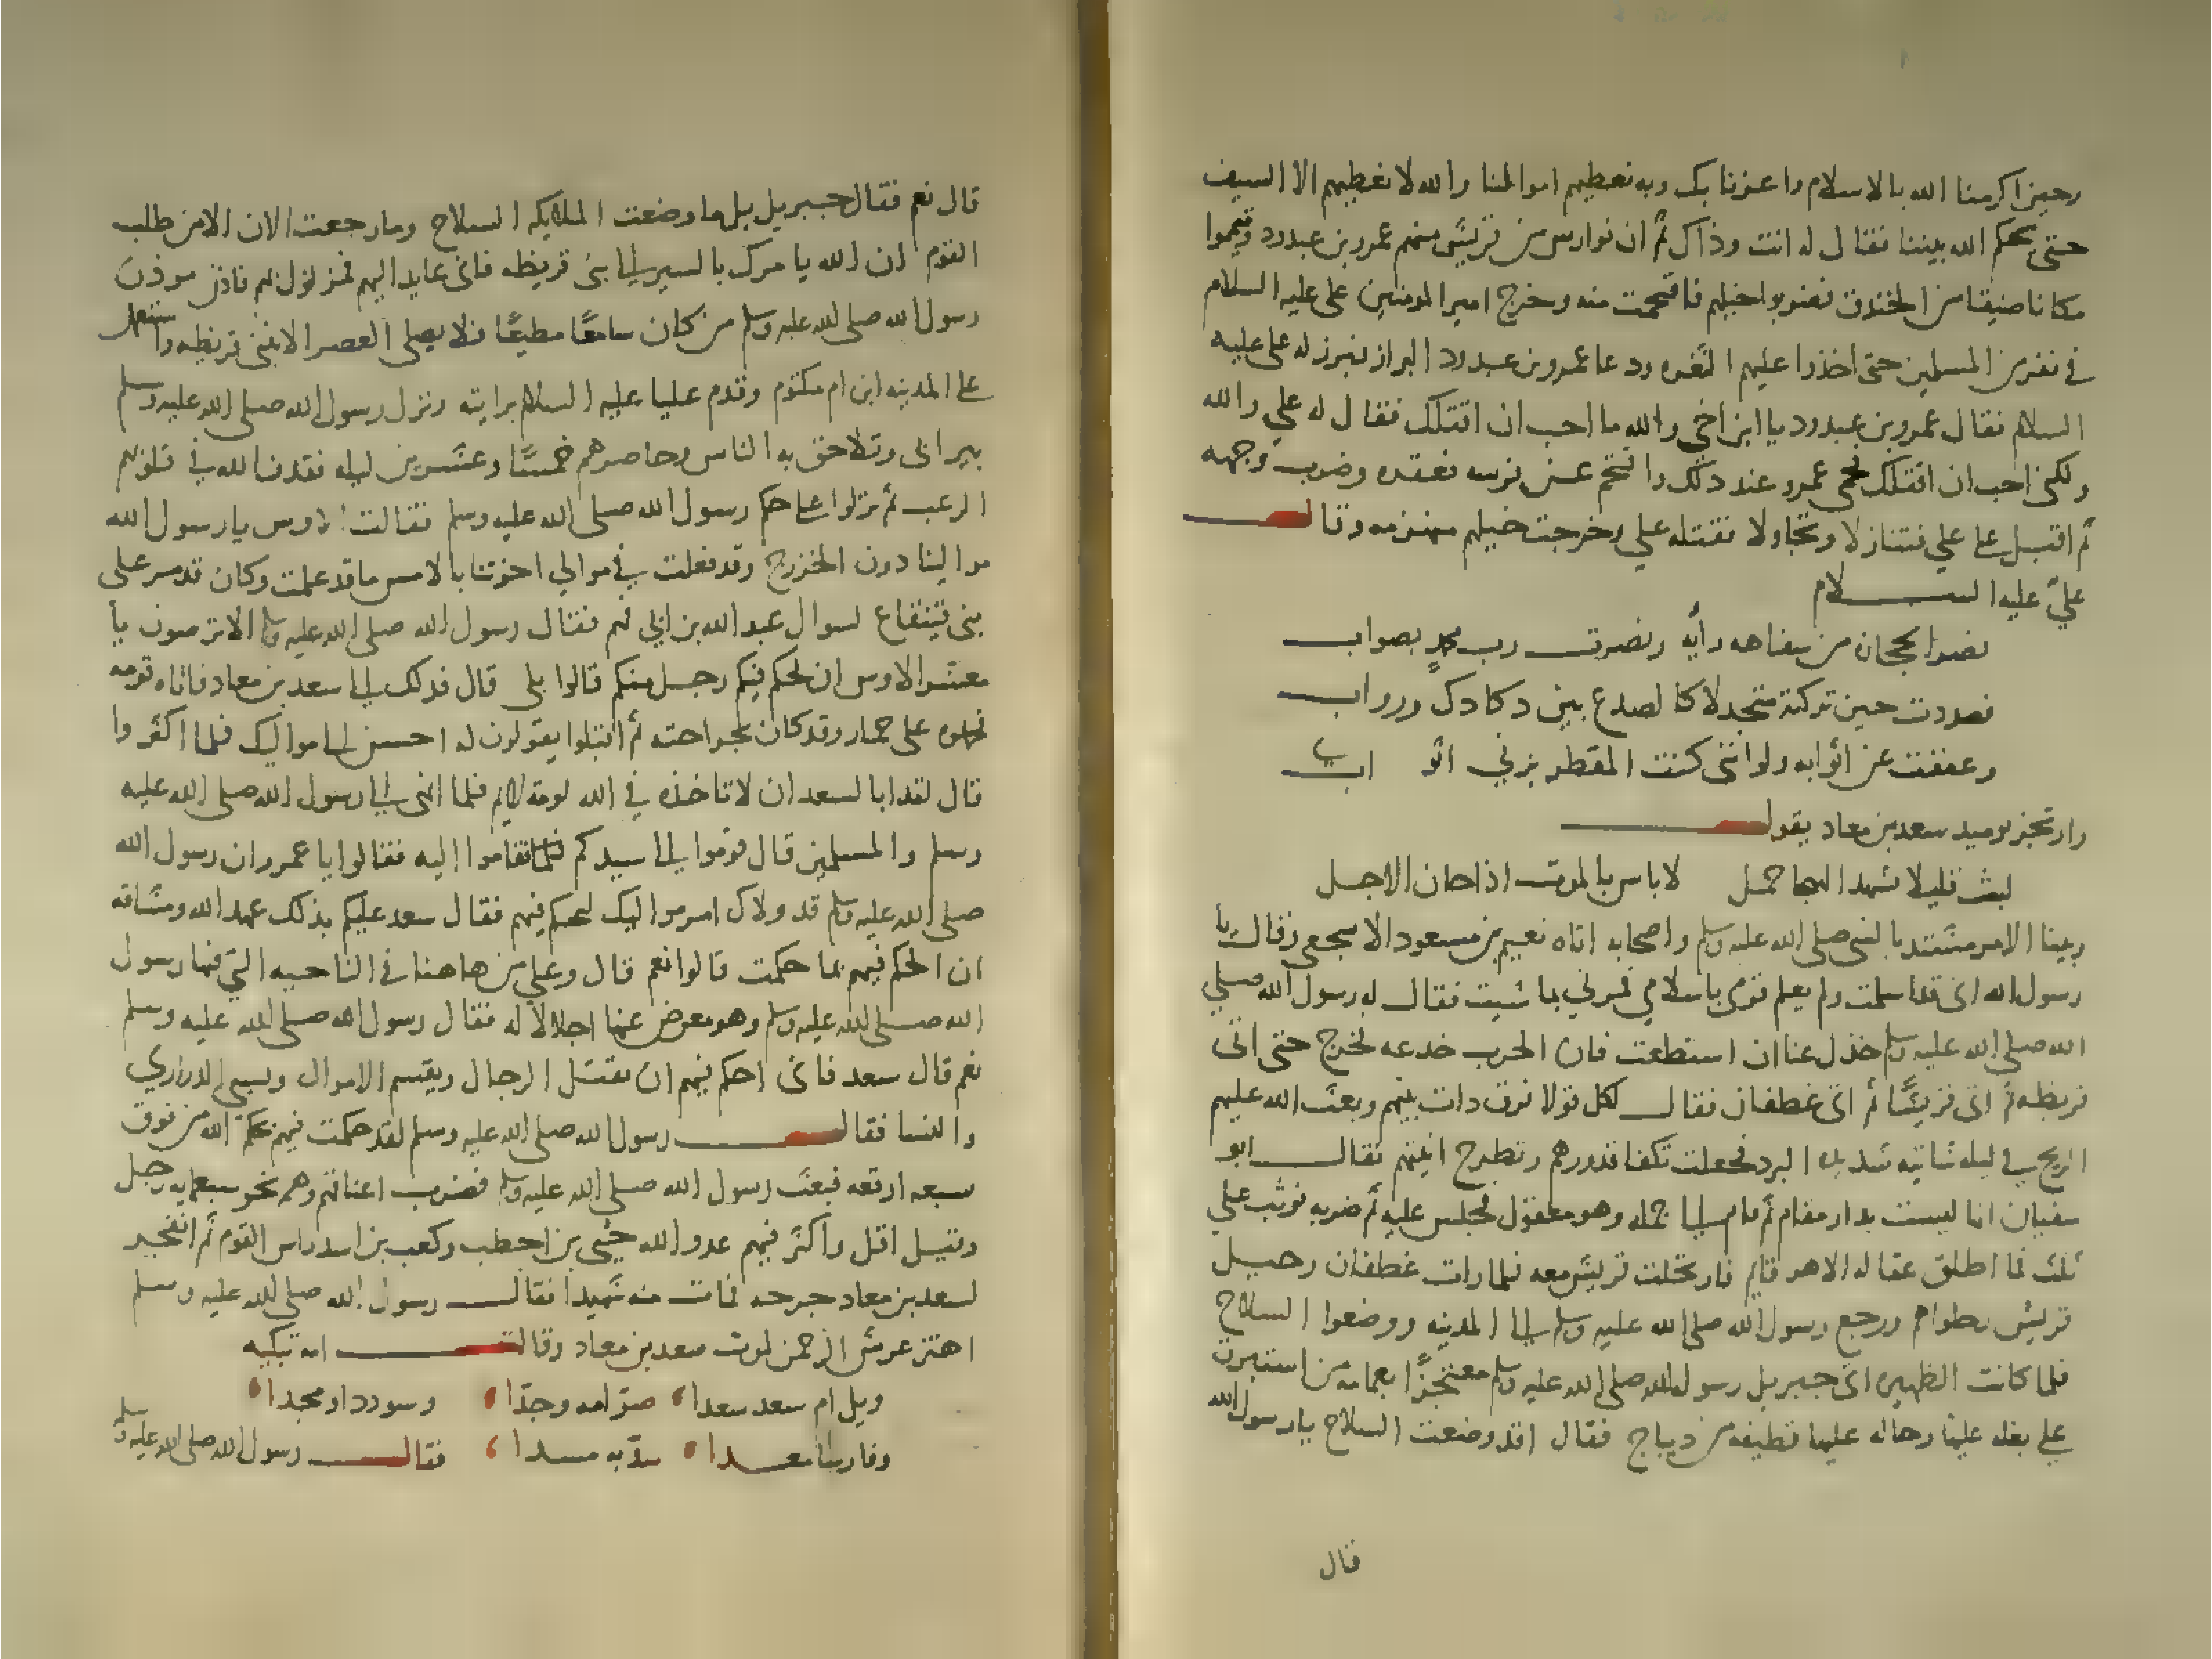 وحين اكرمنا الله بالاسلام واعزنا بك وبه نعطيهم اموالنا والله لا نعطيهم الا السيف
حتى يحكم الله بيننا فقال له انت وذاك ثم ان فوارس من قريش منهم عمرو بن عبدود تيمموا
مكانا ضيقا من الخندق فضربوا خيلهم فاقتحمت منه وخرج امير المومنين علي عليه السلام
في نفر من المسلمين حتى اخذوا عليهم الثغره ودعا عمرو بن عبدود البراز فبرز له علي عليه
السلام فقال عمرو بن عبدود يا ابن اخي والله ما احب ان اقتلك فقال له علي والله
ولكني احب ان اقتلك فحمي عمرو عند ذلك واقتحم عن فرسه فعقره وضرب وجهه
ثم اقبل على علي فتنازلا وتجاولا فقتله علي وخرجت خيلهم منهزمه وقال
علي عليه السلام
نصر الحجاره من سفاهه رأيه ونصرت رب محمد بصواب
فصددت حين تركته متجدلا كالصدع بين دكادك وروابي
وعففت عن اثوابه ولو انني كنت المقطر بزني اثوابي
وارتجز يوميد سعد بن معاد يقول
لبث قليلا تشهد الهجا حمل لا باس بالموت اذا حان الاجل
وبينا الامر مشتد بالنبي صلى الله عليه وسلم واصحابه اتاه نعيم بن مسعود الاشجعي وقال يا
رسول الله اني قد اسلمت ولم يعلم قومي باسلامي فمرني بما شيت فقال له رسول الله صلى
الله صلى الله عليه وسلم خذل عنا ان استطعت فان الحرب خدعه فخرج حتى اتى
قريظه ثم اتى قريشا ثم اتى غطفان فقال لكل قولا فرق دات بينهم وبعث الله عليهم
الريح في ليله شاتيه شديده البرد فجعلت تكفا قدورهم وتطرح انيتهم فقال ابو
سفيان انا ليست بدار مقام ثم قام الى جمله وهو معقول فجلس عليه ثم ضربه فوثب على
ثلث فما اطلق عقاله الا هو قايم فارتحلت قريش معه فلما رات غطفان رحيل
قريش رجع رسول الله صلى الله عليه وسلم الى المدينه ووضعوا السلاح
فلما كانت الظهيره اتى جبريل رسول الله صلى الله عليه وسلم معتجرا بعمامه من استبرق
على بغله عليها رحاله عليها قطيفه من ديباج فقال اقد وضعت السلاح يا رسول الله
قال
قال نعم فقال جبريل بل ما وضعت الملايكه السلاح وما رجعت الان الا من طلب
القوم ان الله يامرك بالسير الى بني قريظه فاني عايد اليهم فمزلزل بهم فاذن موذن
رسول الله صلى الله عليه وسلم من كان سامعا مطيعا فلا يصلي العصر الا ببني قريظه واستعمل
على المدينه ابن ام مكتوم وقدم عليا عليه السلام برايته ونزل رسول الله صلى الله عليه وسلم
بيرانى وتلاحق به الناس وحاصرهم خمسا وعشرين ليله فقذف الله في قلوبهم
الرعب ثم نزلوا على حكم رسول الله صلى الله عليه وسلم فقالت الاوس يا رسول الله
موالينا دون الخزرج وقد فعلت في موالي اخوتنا بالامس ما قد علمت وكان قد مر على
بني قينقاع لسوال عبد الله بن ابي فيهم فقال رسول الله صلى الله عليه وسلم الا ترضون يا
معشر الاوس ان يحكم فيكم رجل منكم قالوا بلى قال فذلك الى سعد بن معاد فاتاه قومه
فحملوه على حمار وقد كان بجراحته ثم اقبلوا يقولون له احسن الى مواليك فلما اكثروا
قال لقد ابا لسعد ان لا تاخذه في الله لومة لايم فلما اتى الى رسول الله صلى الله عليه
وسلم والمسلمين قال قوموا الى سيدكم فقاموا اليه فقالوا يا عمرو ان رسول الله
صلى الله عليه وسلم قد ولاك امر مواليك لتحكم فيهم فقال سعد عليكم بذلك عهد الله وميثاقه
ان الحكم فيهم بما حكمت قالوا نعم قال وعلى من هاهنا في الناحيه التي فيها رسول
الله صلى الله عليه وسلم وهو معرض عنها اجلالا له فقال رسول الله صلى الله عليه وسلم
نعم قال سعد فاني احكم فيهم ان تقتل الرجال ويقسم الاموال وتسبى الذراري
والنسا فقال رسول الله صلى الله عليه وسلم لقد حكمت فيهم بحكم الله من فوق
سبعه ارقعه فبعث رسول الله صلى الله عليه وسلم فضرب اعناقهم وهم نحو سبعمايه رجل
وقيل اقل واكثر فيهم عدو الله حيي بن اخطب وكعب بن اسد راس القوم ثم انفجر
لسعد بن معاد جرحه فمات منه شهيدا فقال رسول الله صلى الله عليه وسلم
اهتز عرش الرحمن لموت سعد بن معاد وقالت امه تبكيه
ويل ام سعد سعدا صرامه وجدا وسوددا ومجدا
وفارسا معدا سد به مسدا فقال رسول الله صلى الله عليه وسلم